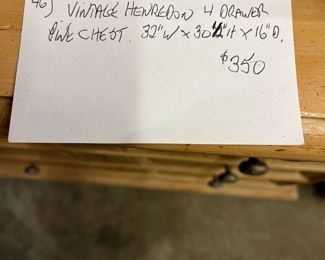 46) VINTAGE HENREDON 4 DRAWER
PINE CHEST. 32"W X 30½"H X 16"D.
$350